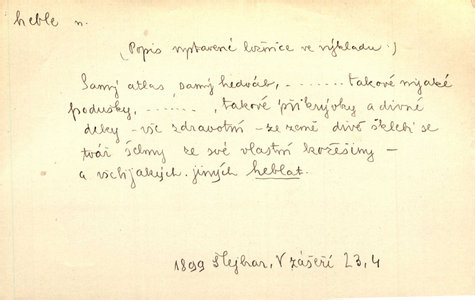 heble n.
(Popis vystavené ložnice ve výkladu.)
Samý atlas, samý hedváb, ........ takové nijaké
podušky, ......., takové přikrývky a divné
deky – vše zdravotní – ze země divě šklebí se
tvář šelmy ze své vlastní kožešiny –
a všelijakých jiných heblat.
1899 Šlejhar, V zášeří L3,4